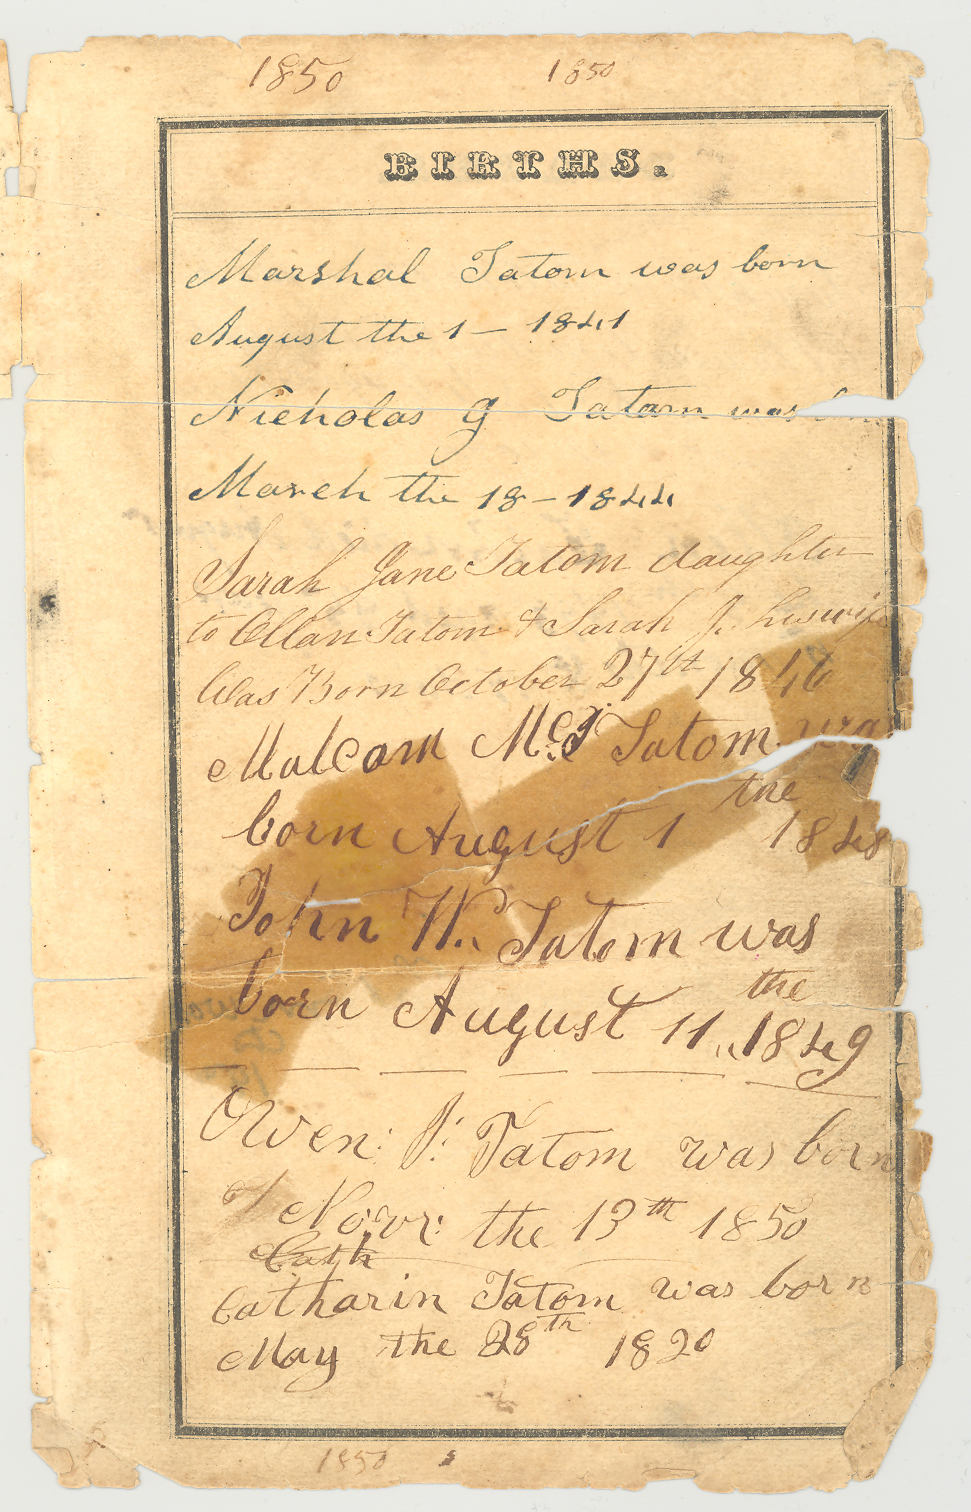 1850 1850
BIRTHS.
Marshal Tatom was born
August the 1 – 1841
Nicholas G Tatom was
March the 18 – 1844
Sarah Jane Tatom daughter
to Allan Tatom & Sarah J. his wife
Was Born October 27th 1846
Malcom Mc Tatom was
the
born August 1 1848
John W. Tatom was
the
born August 11 1849
Owen: J: Tatom was born
Novr: the 13th 1850
Cath
Catharin Tatom was born
May the 28th 1820
1850